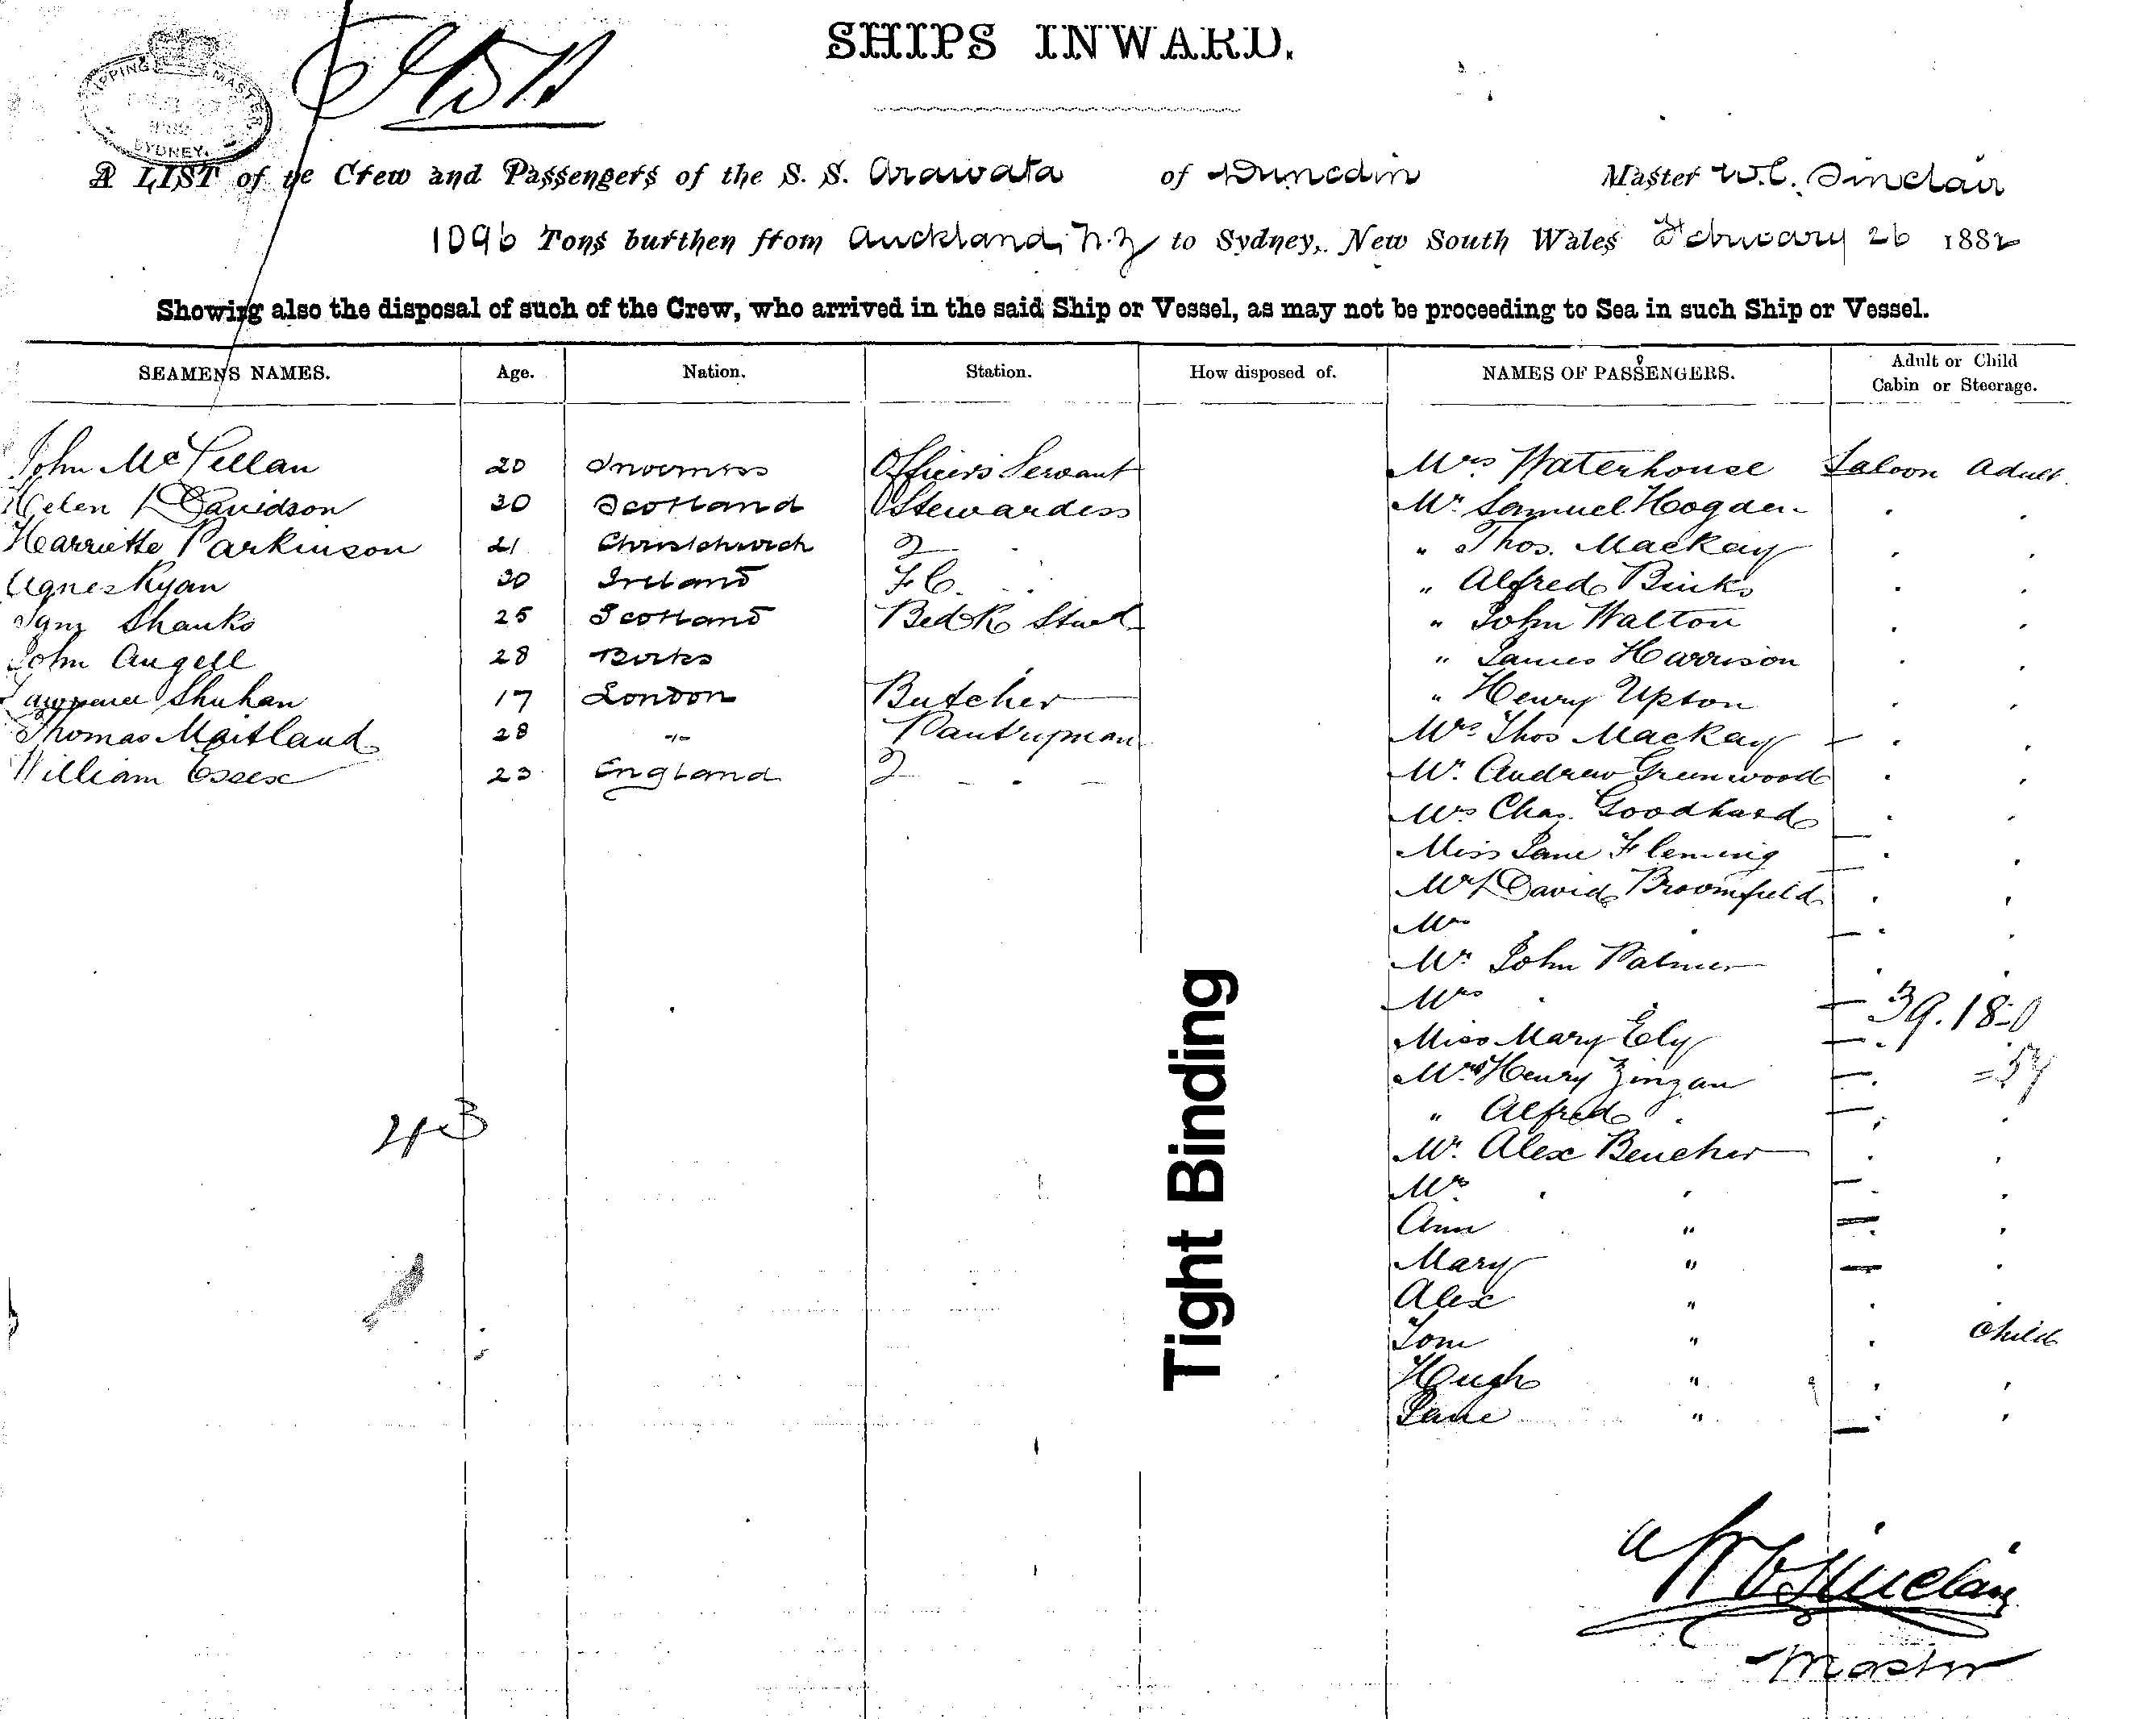 SHIPS INWARD.
SHIPPING MASTER
SYDNEY.
A LIST of the Crew and Passengers of the S. S. Arawata of Dunedin Master W.C. Sinclair
1096 Tons burthen from Auckland, N.Z to Sydney, New South Wales February 26 1882
Showing also the disposal of such of the Crew, who arrived in the said Ship or Vessel, as may not be proceeding to Sea in such Ship or Vessel.
SEAMENS NAMES. Age. Nation. Station. How disposed of. NAMES OF PASSENGERS. Adult or Child Cabin or Steerage.
John McLellan 20 Inverness Officers Servant Mrs Waterhouse Saloon Adult.
Helen Davidson 30 Scotland Stewardess Mr Samuel Hogden
Harriette Parkinson 21 Christchurch 2 " Thos. Mackay
Agnes Ryan 30 Ireland F.C. " Alfred Binks
Shanks 25 Scotland Bed R Stwd " John Walton
John Angell 28 Berks " James Harrison
Lawrence Shuhan 17 London Butcher " Henry Upton
Thomas Maitland 28 -"- Pantryman Mrs Thos Mackay
William Essex 23 England 2 - - - Mr. Andrew Greenwood
Chas. Goodhard
Miss Jane Fleming
Mr David Broomfield
Mrs
Mr John Palmer
Mrs 39.18.0
Miss Mary Ely
Mrs Henry Zinzan = 57
" Alfred
Mr. Alex Beucher
Mrs
Ann "
Mary "
Alex "
Tom " Child
Hugh "
Jane "
43
Tight Binding
W C Sinclair
Master